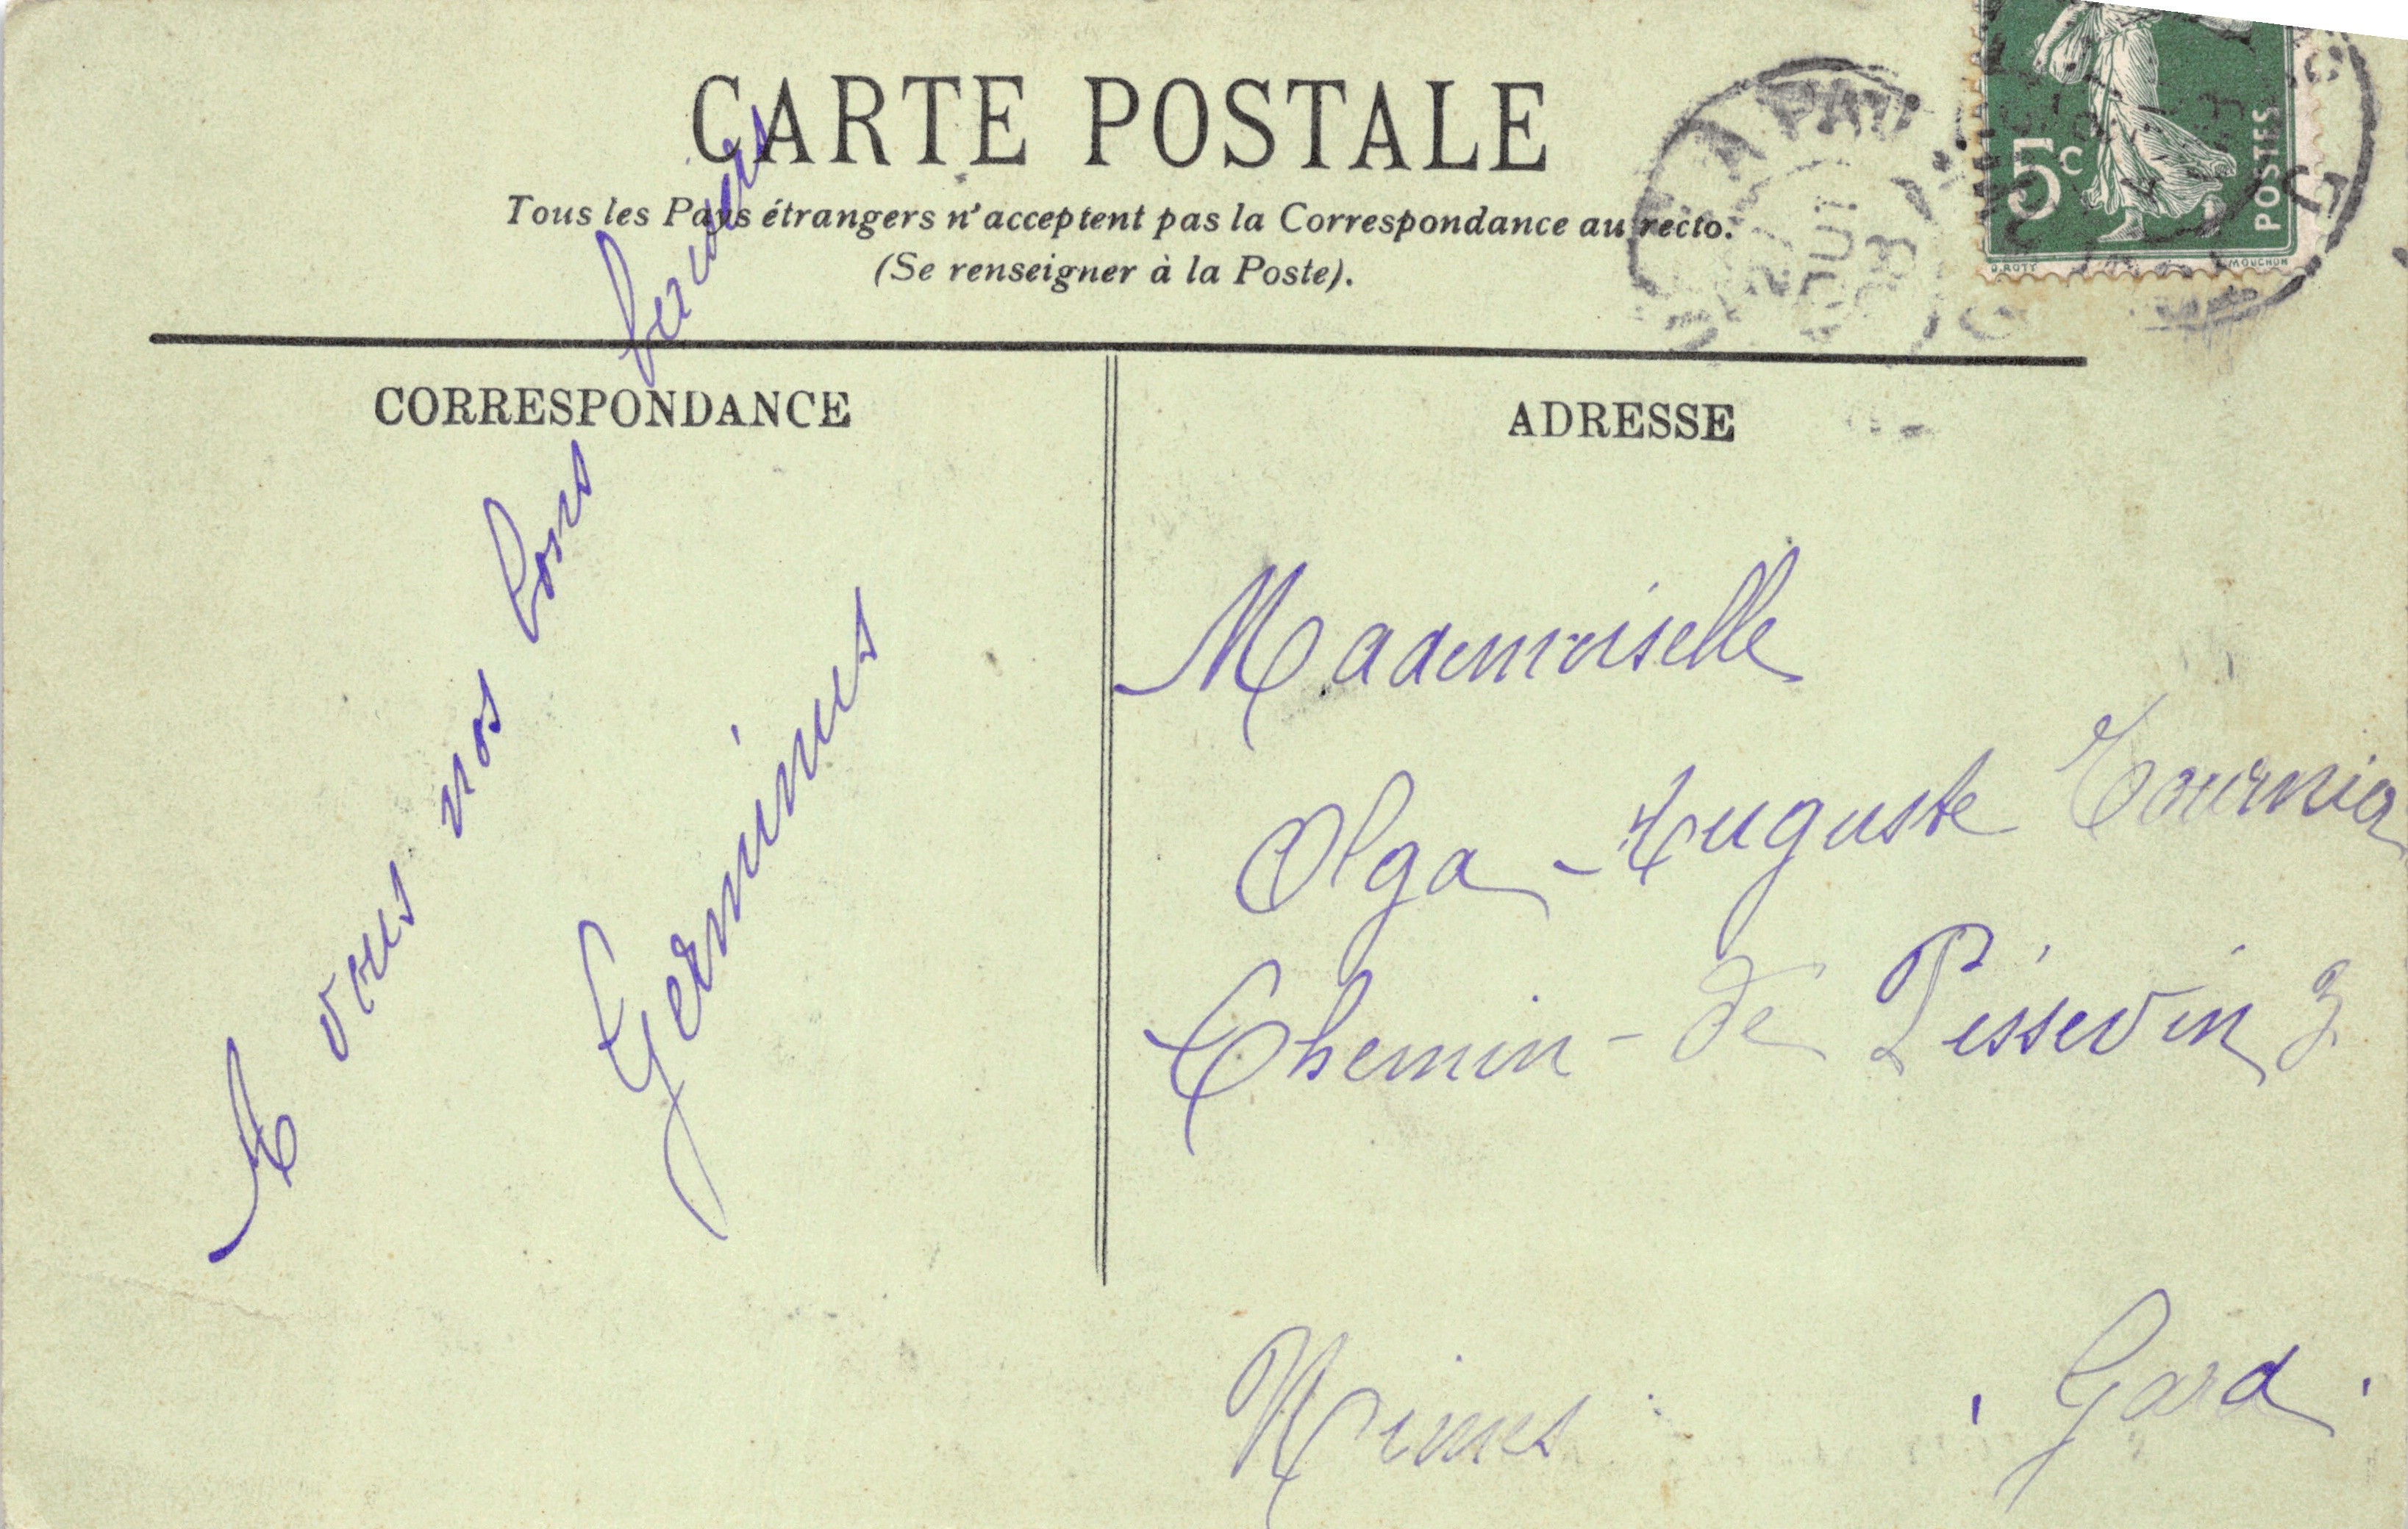 CARTE POSTALE
Tous les Pays étrangers n'acceptent pas la Correspondance au recto.
(Se renseigner à la Poste).
5c
POSTES
O. ROTY
MOUCHON
27
AOUT
08
CORRESPONDANCE
ADRESSE
A vous nos bons
Germinus
Mademoiselle
Olga - Auguste Tournier
Chemin - de Pissevin 3
Nimes . Gard .